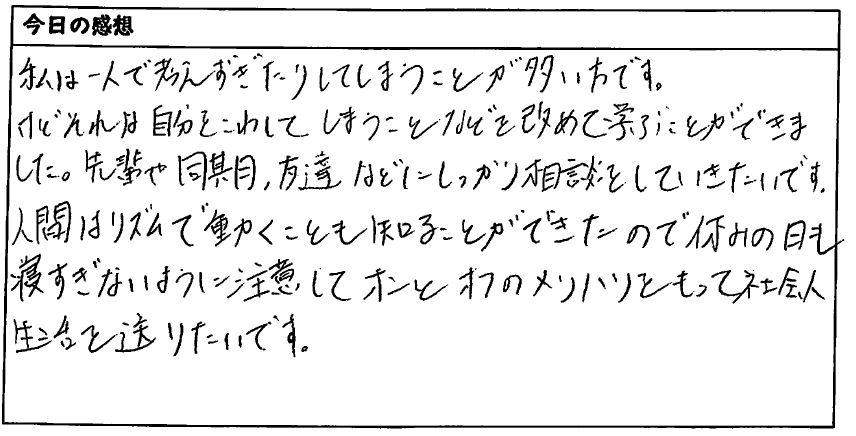 今日の感想
私は一人で考えすぎたりしてしまうことが多い方です。
けどそれは自分をこわしてしまうことなどを改めて学ぶことができま
した。先輩や同期、友達などにしっかり相談をしていきたいです。
人間はリズムで動くことも知ることができたので休みの日も
寝すぎないように注意してオンとオフのメリハリをもって社会人
生活を送りたいです。